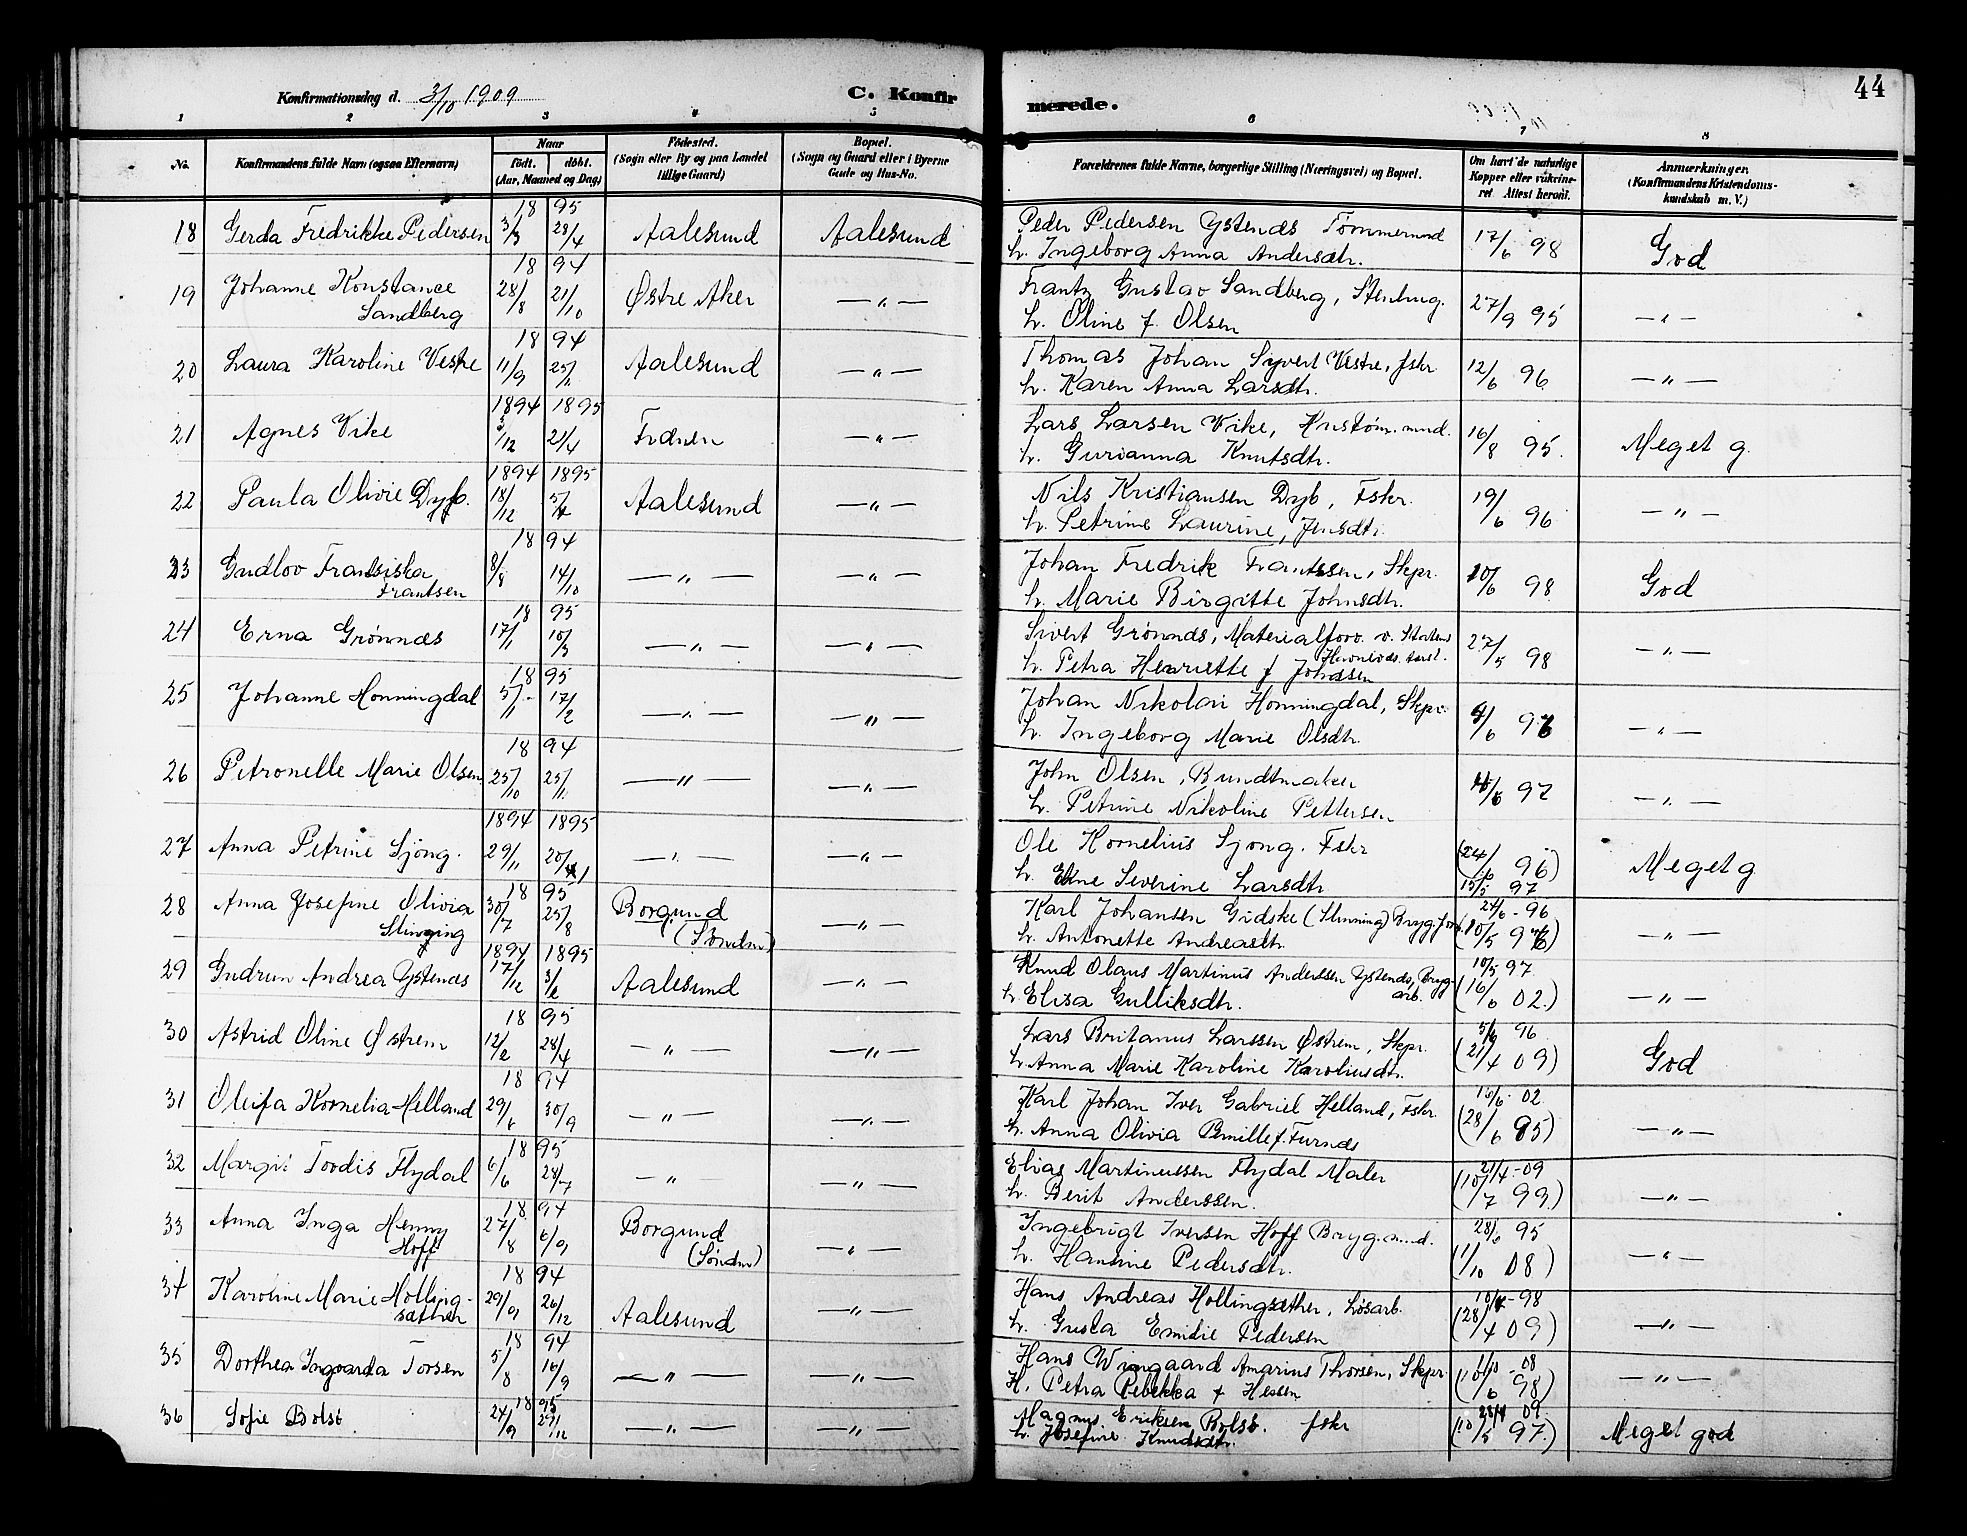 44
Konfirmationsdag d. 3/10 1909
C. Konfirmerede.
1 2 3 4 5 6 7 8
No.
Konfirmandens fulde Navn (ogsaa Efternavn)
Naar
født. døbt.
(Aar, Maaned og Dag)
Fødested.
(Sogn eller By og paa Landet
tillige Gaard)
Bopæl.
(Sogn og Gaard eller i Byerne
Gade og Hus-No.
Forældrenes fulde Navne, borgerlige Stilling (Næringsvei) og Bopæl.
Om havt de naturlige
Kopper eller vakcine-
ret. Attest herom.
Anmærkninger.
(Konfirmandens Kristendoms-
kundskab m. V.)
18 95
18 Gerda Fredrikke Pedersen 3/3 28/4 Aalesund Aalesund
Peder Pedersen Ystenes Tømmermd 17/6 98 God
h. Ingeborg Anna Andersdtr.
18 94
19 Johanne Konstance 28/8 21/10 Østre Aker — " —
Sandberg
Frantz Gustav Sandberg, Stenhug. 27/9 95 — " —
h. Oline f. Olsen
18 94
20 Laura Karoline Vestre 11/9 25/11 Aalesund — " —
Thomas Johan Syvert Vestre, fskr. 12/6 96 — " —
h. Karen Anna Larsdtr.
1894 1895
21 Agnes Vike /12 21/4 Frænen — " —
Lars Larsen Vike, Hustøm.mnd. 16/8 95. Meget g.
h. Gurianna Knutsdtr.
1894 1895
22 Paula Olivie Dyb. 18/12 5/4 Aalesund — " —
Nils Kristiansen Dyb, Fskr. 19/6 96 — " —
h. Petrine Laurine, Jensdtr.
18 94
23 Gudlov Fransiska 8/8 14/10 — " — — " —
Frantsen
Johan Fredrik Frantssen, Skpr. 10/6 98 God
h. Marie Birgitte Johnsdtr.
18 95
24 Erna Grønnæs 17/1 10/3 — " — — " —
Sivert Grønnes, Materialforv. v. Statens 27/5 98 — " —
h. Petra Henriette f Johnsen
18 95
25 Johanne Honningdal 5/1 17/2 — " — — " —
Johan Nikolai Honningdal, Skpr. /6 96 — " —
h. Ingeborg Marie Olsdtr.
18 94
26 Petronelle Marie Olsen 25/10 25/11 — " — — " —
John Olsen, Bundtmaker /6 97 — " —
h. Petrine Nikoline Pettersen
1894 1895
27 Anna Petrine Sjong. 29/11 20/1 — " — — " —
Ole Kornelius Sjong. Fskr (24/6 96) Meget g
h. Eline Severine Larsdtr. 15/5 97
18 95
28 Anna Josefine Olivia 30/7 25/8 Borgund — " —
Slinning (Søndm)
Karl Johansen Gidske (Slinning) Bryg.form. 24/6 - 96 (10/5 96) — " —
h. Antonette Andreasdtr.
1894 1895
29 Gudrun Andrea Ystenes 17/12 3/2 Aalesund — " —
Knud Olaus Martinus Anderssen Ystenes, Bryg- 10/5 97 (16/6 02.) — " —
arb.
h. Elisa Gulliksdtr.
18 95
30 Astrid Oline Østrem 12/2 28/4 — " — — " —
Lars Britanus Larssen Østrem, Skpr. 5/6 96 (21/4 09) God
h. Anna Marie Karoline Karoliusdtr.
18 94
31 Oleifa Kornelia Helland 29/6 30/9 — " — — " —
Karl Johan Iver Gabriel Helland, Fskr. 16/6 02 (28/6 95) — " —
h. Anna Olivia Pernille f. Furnes
18 95
32 Margit Tordis Flydal 6/6 28/7 — " — — " —
Elias Martinussen Flydal Maler 21/4 - 09 (10/7 99.) — " —
h. Berit Anderssen.
18 94
33 Anna Inga Henny 27/8 6/9 Borgund — " —
Hoff (Søndm)
Ingebrigt Iversen Hoff Bryg.m..d. 28/6 95 (1/10 08) — " —
h. Hansine Pedersdtr.
18 94
34 Karoline Marie Holling- 29/9 26/12 Aalesund — " —
sæther
Hans Andreas Hollingsæther, Løsarb. 98 (28/4 09) — " —
h. Gusta Emilie Pedersen
18 94
35 Dorthea Ingvarda Torsen 5/8 16/9 — " — — " —
Hans Wingaard Amarius Thorsen, Skpr. 1/10 - 08 (10/6 98) — " —
H. Petra Rebekka f Hessen
18 95
36 Sofie Bolst 24/9 29/12 — " — — " —
Magnus Eriksen Bolst. fskr 28/4 09 (10/5 97.) Meget god
h. Josefine Knudsdtr.